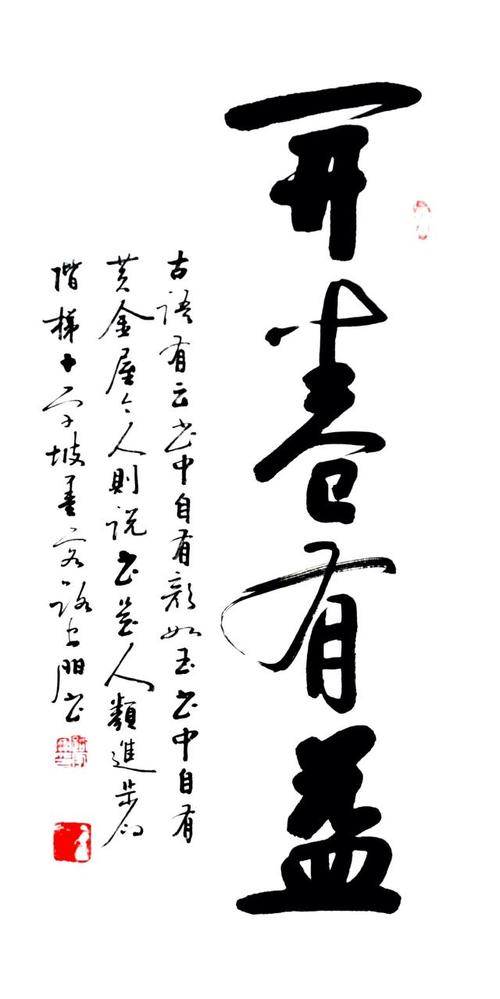 开卷有益
古语有云书中自有颜如玉书中自有
黄金屋今人則说书是人類進步的
階梯十字坡墨客路士书